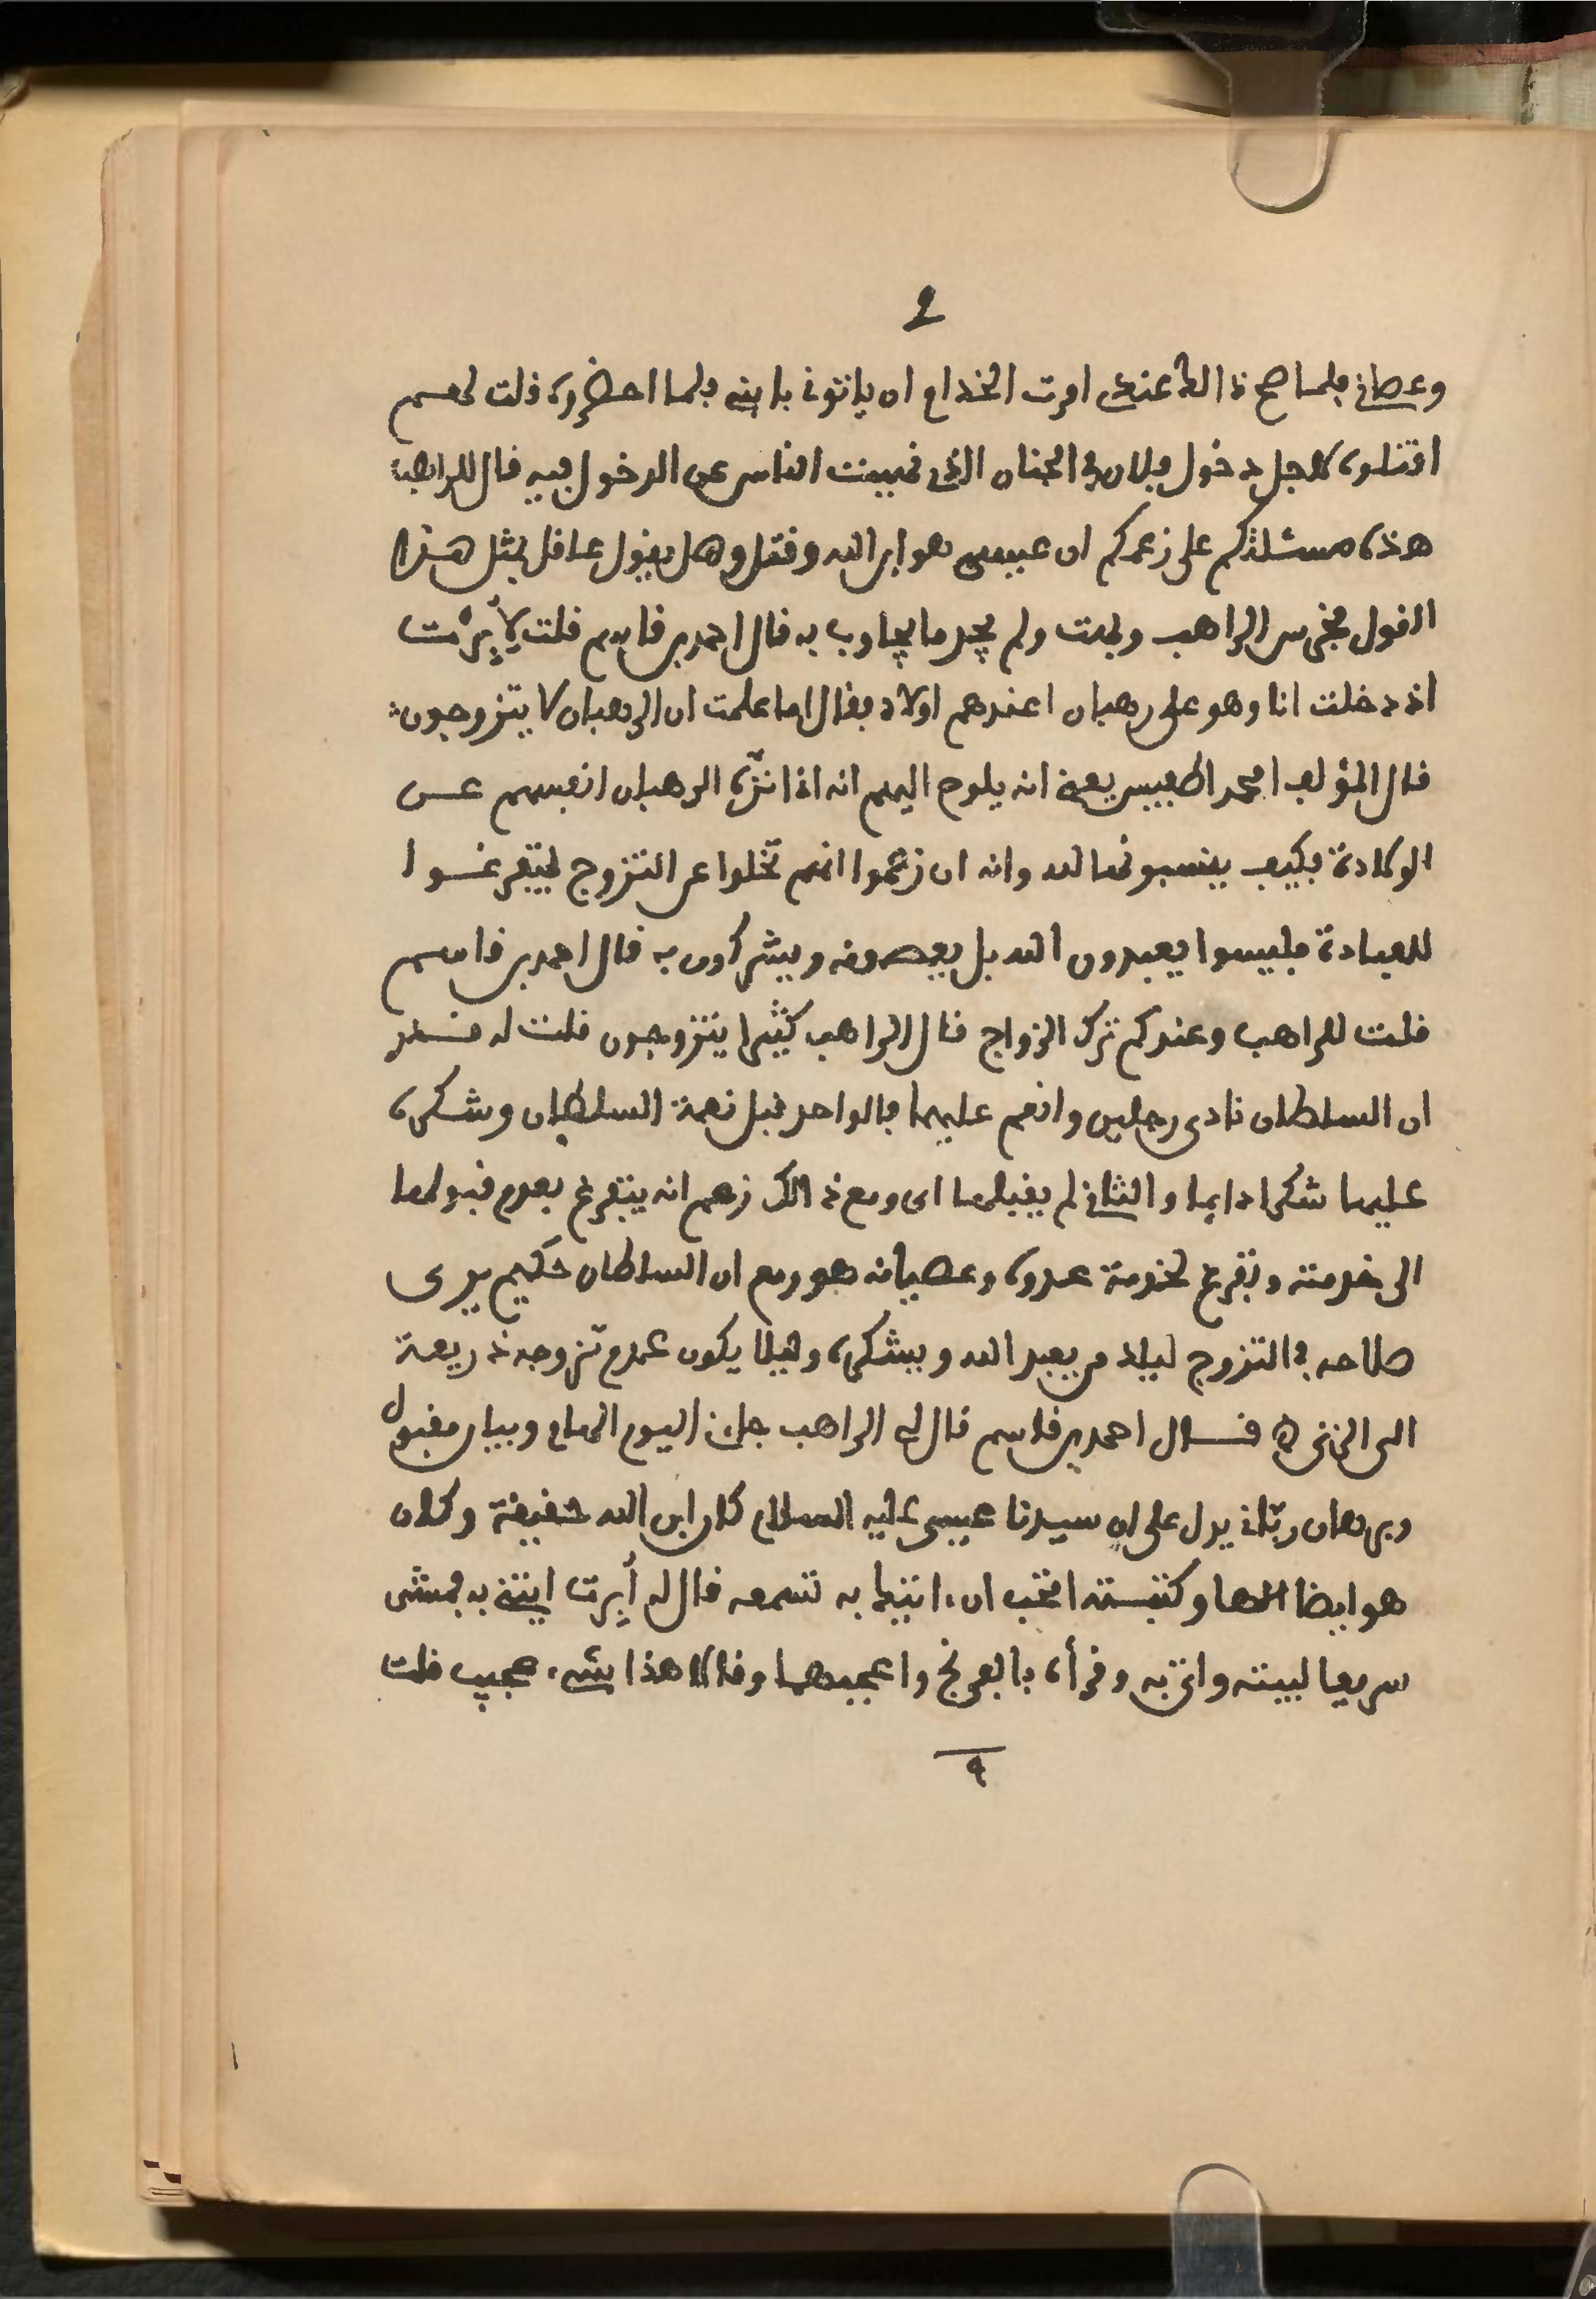 9
وعصاني فلما صح ذالك عندي امرت الخدام ان ياتوني بابني فلما احضروه قلت لهم
اقتلوه لاجل دخول فلان في الجنان الذي نهيت الناس عن الدخول فيه قال للراهب
هذه مسئلتكم على زعمكم ان عيسى هو ابن الله وقتل وهل يقول عاقل بمثل هذا
القول فخرس الراهب وبهت ولم يجد ما يجاوب به قال احمد بن قاسم قلت لأبرت
اذ دخلت انا وهو على رهبان اعندهم اولاد فقال اما علمت ان الرهبان لا يتزوجون
قال المؤلف امحمد اطفيش يعني انه يلوح اليهم انه اذا نزّه الرهبان انفسهم عن
الولادة فكيف ينسبونها لله وانه ان زعموا انهم تخلوا عن التزوج ليتفرغوا
للعبادة فليسوا يعبدون الله بل يعصونه ويشركون به قال احمد بن قاسم
قلت للراهب وعندكم ترك الزواج قال الراهب كثيرا يتزوجون قلت له قدر
ان السلطان نادى رجلين وانعم عليهما فالواحد قبل نعمة السلطان وشكره
عليها شكرا دايما والثاني لم يقبلها اى ومع ذالك زعم انه يتفرغ بعدم قبولها
الى خدمته وتفرغ لخدمة عدوه وعصيانه هو ومع ان السلطان حكيم يرى
صلاحه في التزوج ليلد من يعبد الله ويشكره وليلا يكون عدم تزوجه ذريعة
الى الزنى قال احمد بن قاسم قال لي الراهب جاني اليوم الهام وبيان مقبول
وبرهان ربّاني يدل على ان سيدنا عيسى عليه السلام كان ابن الله حقيقة وكان
هو ايضا الها وكتبته اتحب ان اتيتها به تسمعه قال له أبرت ايتني به فمشى
سريعا لبيته واتى به وقرأه بالفرنج واعجبهما وقالا هذا شيء عجيب قلت
٩